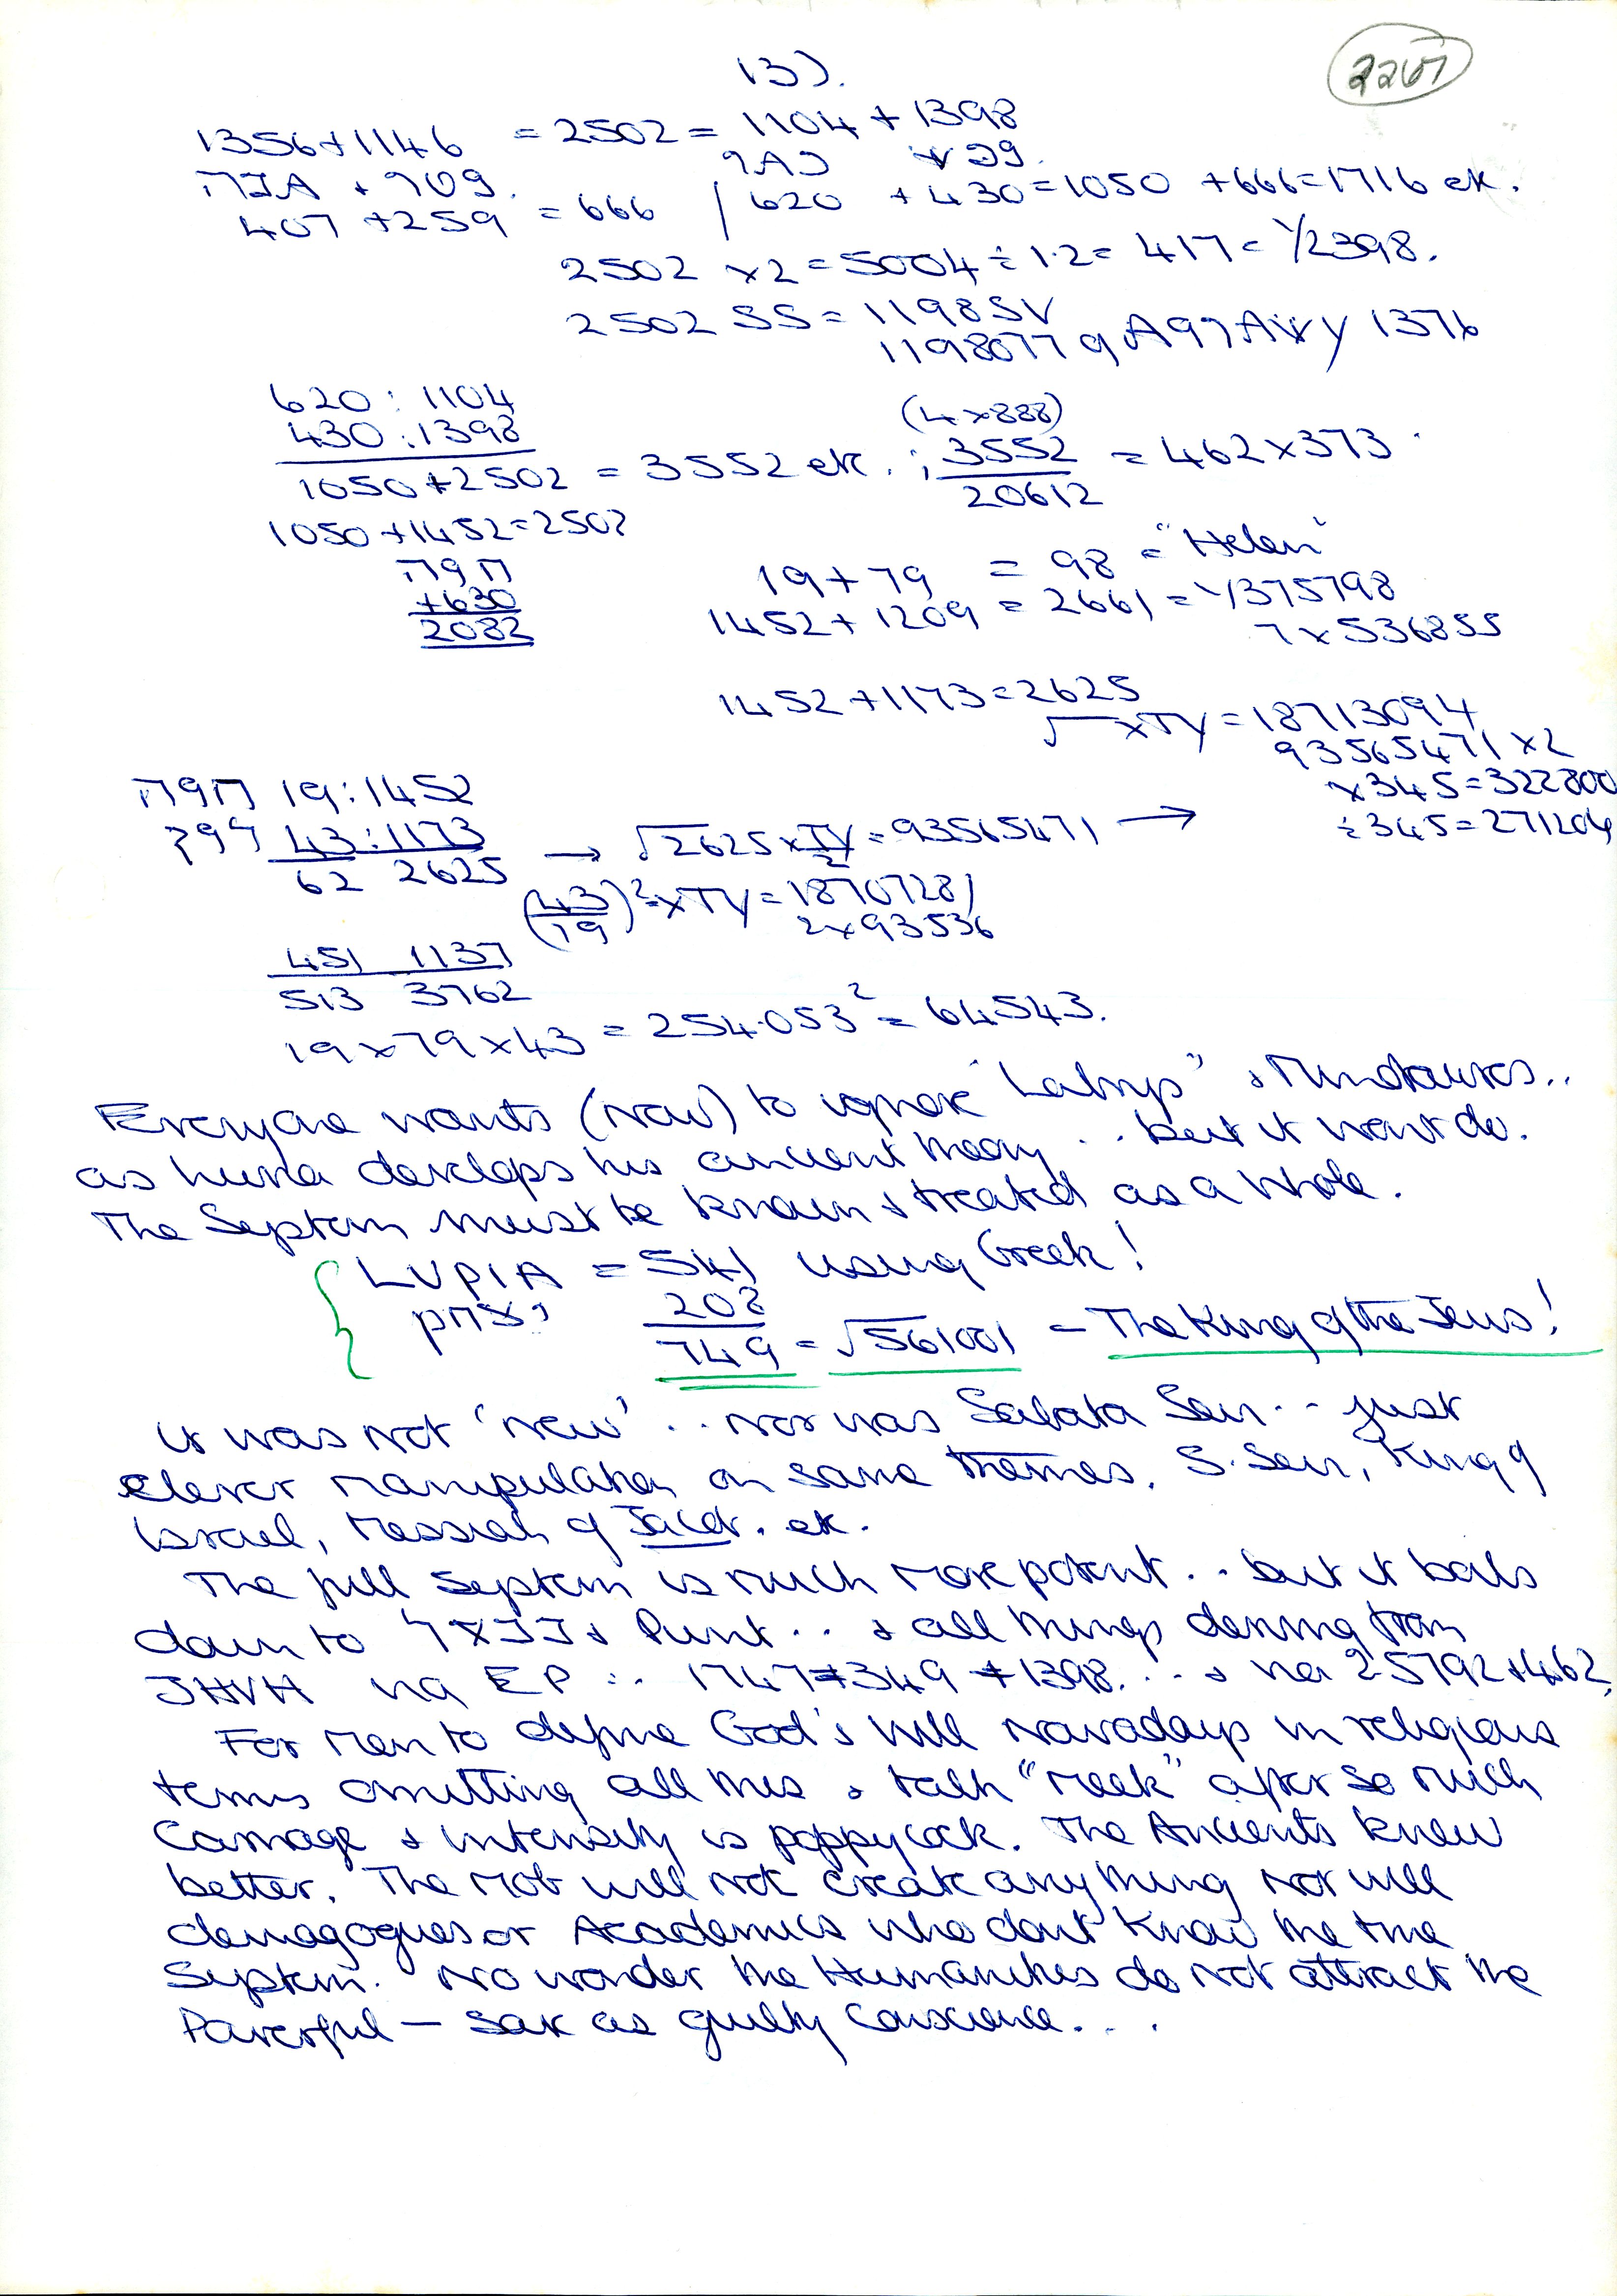 13).
1356+1146 = 2502 = 1104 + 1398
407 + 259 = 666 / 620 + 430=1050 +666=1716 etc.
2502 x2 = 5004 ÷ 1.2= 417 = 1/2398.
2502 SS = 1198 SV
1198077 1376
620 : 1104
430 : 1398
1050 + 2502 = 3552 etc. ; 3552 = 462x373
(4x888)
20612
1050 +1452=2502
+630
2082
19+79 = 98 = "Helen"
1452+1209 = 2661 = 1/375798
7 x 536855
1452+1173=2625
√ xTY = 18713094
93565471 x2
x345=322800
÷345=271204
19:1452
43:1173
62 2625 → √2625 x TY/2 = 93565471 →
(43/19)² x TY = 18707281
2x93536
451 1137
513 3762
19x79x43 = 254.053² = 64543.
Everyone wants (now) to ignore "Labrys" & Minotaures..
as huna develops his ancient theory .. but it wont do.
The System must be known & treated as a whole.
LUPIA = 541 using Greek!
208
749 = √561001 = The King of the Jews!
It was not 'new' .. nor was Sabata Sevi .. just
clever manipulation on same themes. S. Sevi, King of
Israel, Messiah of Jacob. etc.
The full system is much more potent .. but it boils
down to & Punt .. & all things deriving from
JHVH na EP ∴ 1747 349 1398. .. & na 25792 & 462.
For Men to define God's Will nowadays in religious
terms omitting all this & talk "meek" after so much
Carnage & intensity is poppycock. The Ancients knew
better. The Mob will not create anything nor will
demagogues or Academics who dont know the true
System. No wonder the Humanities do not attract the
Powerful — guilty conscience. . .